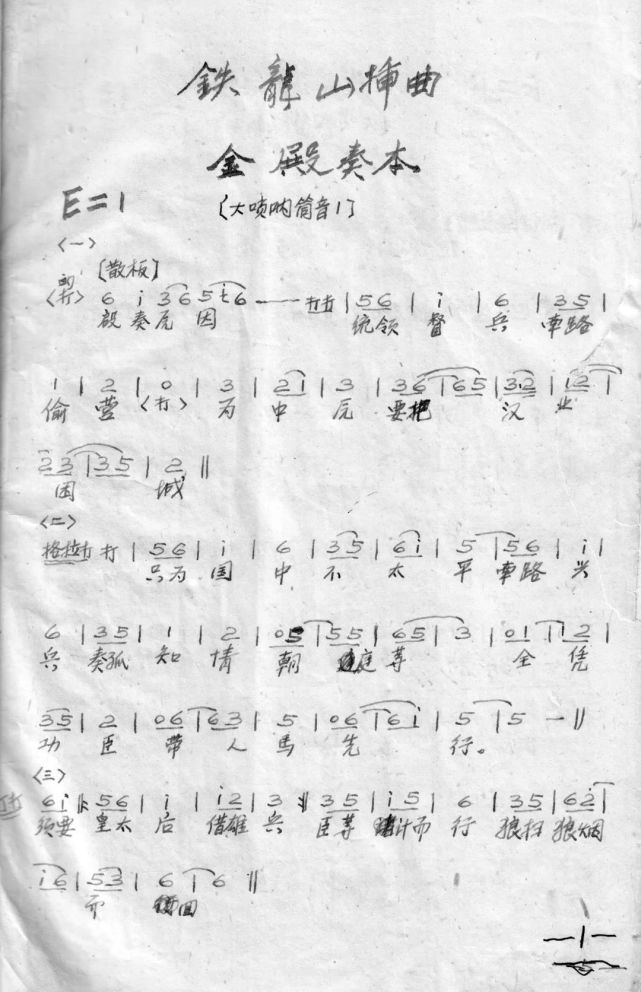 鉄龍山插曲
金殿奏本
E=1 〔大唢呐筒音1〕
〈一〉
〔散板〕
〈打〉 6 i 3 6 5 i 6 —— 打拉 | 5 6 | i | 6 | 3 5 |
啟奏 因 统领 督 兵 路
1 | 2 | 0 | 3 | 2 i | 3 | 3 6 | 6 5 | 3 2 | i 2 |
偷 营 〈打〉 为 中 元 要把 汉 业
2 3 | 3 5 | 2 ‖
困 城
〈二〉
打 | 5 6 | i | 6 | 3 5 | 6 i | 5 | 5 6 | i |
只为 国 中 不 太 平 路 兴
6 | 3 5 | 1 | 2 | 0 5 | 5 5 | 6 5 | 3 | 0 1 | 1 2 |
兵 奏孤 知 情 朝 庭 尊 全 凭
3 5 | 2 | 0 6 | 6 3 | 5 | 0 6 | 6 i | 5 | 5 — ‖
功 臣 带 人 馬 先 行。
〈三〉
6 i ‖: 5 6 | i | i 2 | 3 :‖ 3 5 | i 5 | 6 | 3 5 | 6 2 |
须要 皇太 后 借雄 兵 臣等 计而 行 狼扫 狼烟
i 6 | 5 3 | 6 | 6 ‖
而 回
—1—